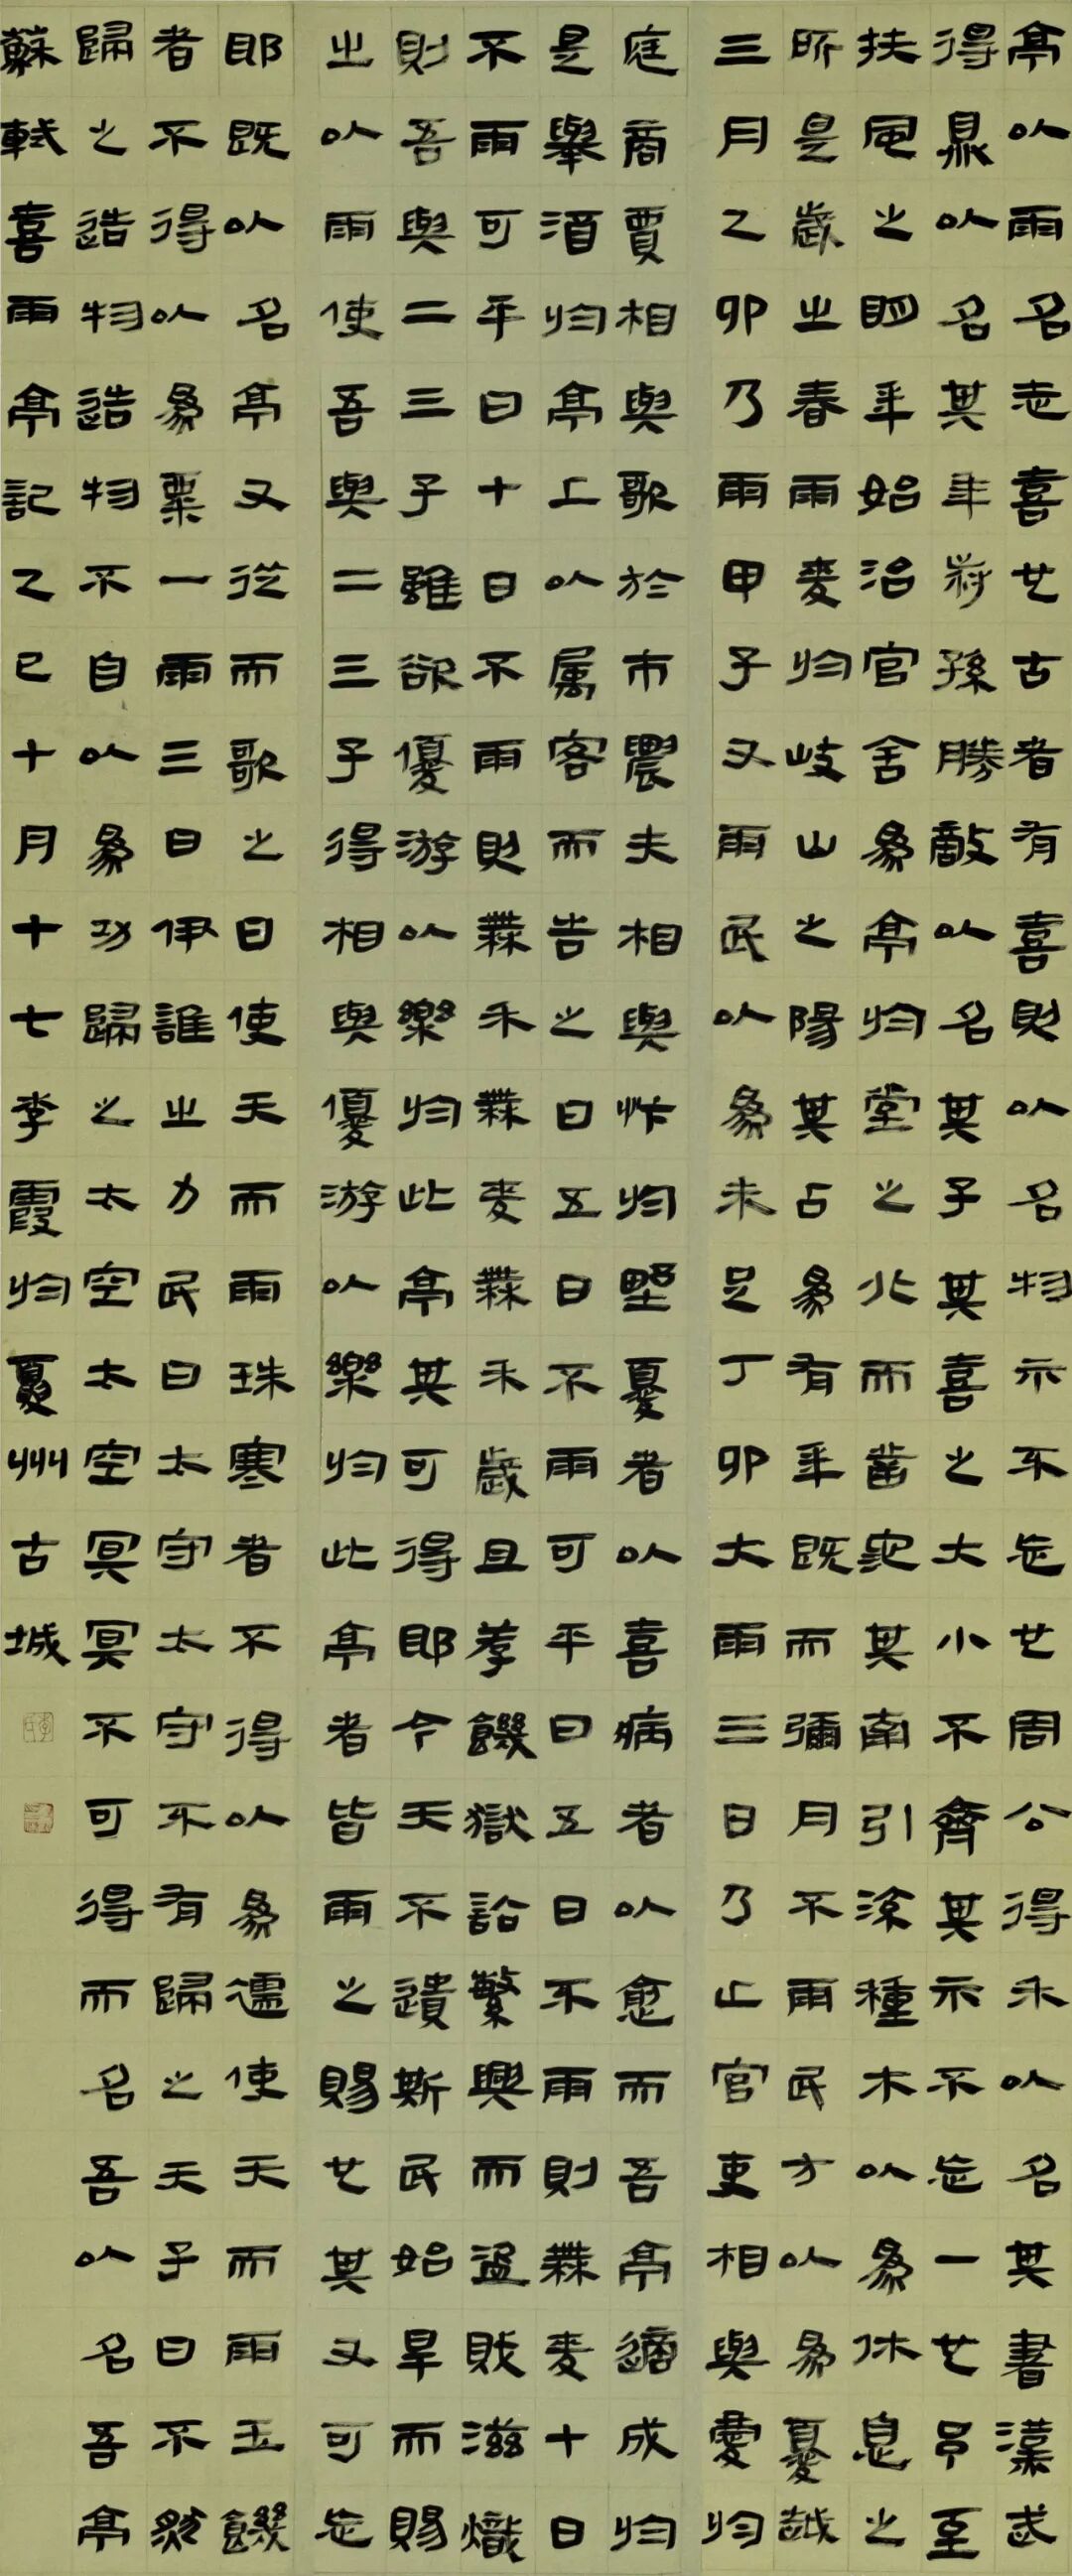 亭以雨名志喜也古者有喜則以名物示不忘也周公得禾以名其書漢武
得鼎以名其年叔孫勝敵以名其子其喜之大小不齊其示不忘一也予至
扶風之明年始治官舍為亭於堂之北而鑿池其南引流種木以為休息之
所是歲之春雨麥於岐山之陽其占為有年既而彌月不雨民方以為憂越
三月乙卯乃雨甲子又雨民以為未足丁卯大雨三日乃止官吏相與慶於
庭商賈相與歌於市農夫相與忭於野憂者以喜病者以愈而吾亭適成於
是舉酒於亭上以属客而告之曰五日不雨可乎曰五日不雨則無麥十日
不雨可乎曰十日不雨則無禾無麥無禾歲且荐饑獄訟繁興而盜賊滋熾
則吾與二三子雖欲優游以樂於此亭其可得耶今天不遺斯民始旱而賜
之以雨使吾與二三子得相與優游以樂於此亭者皆雨之賜也其又可忘
耶既以名亭又從而歌之曰使天而雨珠寒者不得以為襦使天而雨玉饑
者不得以為粟一雨三日伊誰之力民曰太守太守不有歸之天子曰不然
歸之造物造物不自以為功歸之太空太空冥冥不可得而名吾以名吾亭
蘇軾喜雨亭記乙巳十月十七李霞於夏州古城